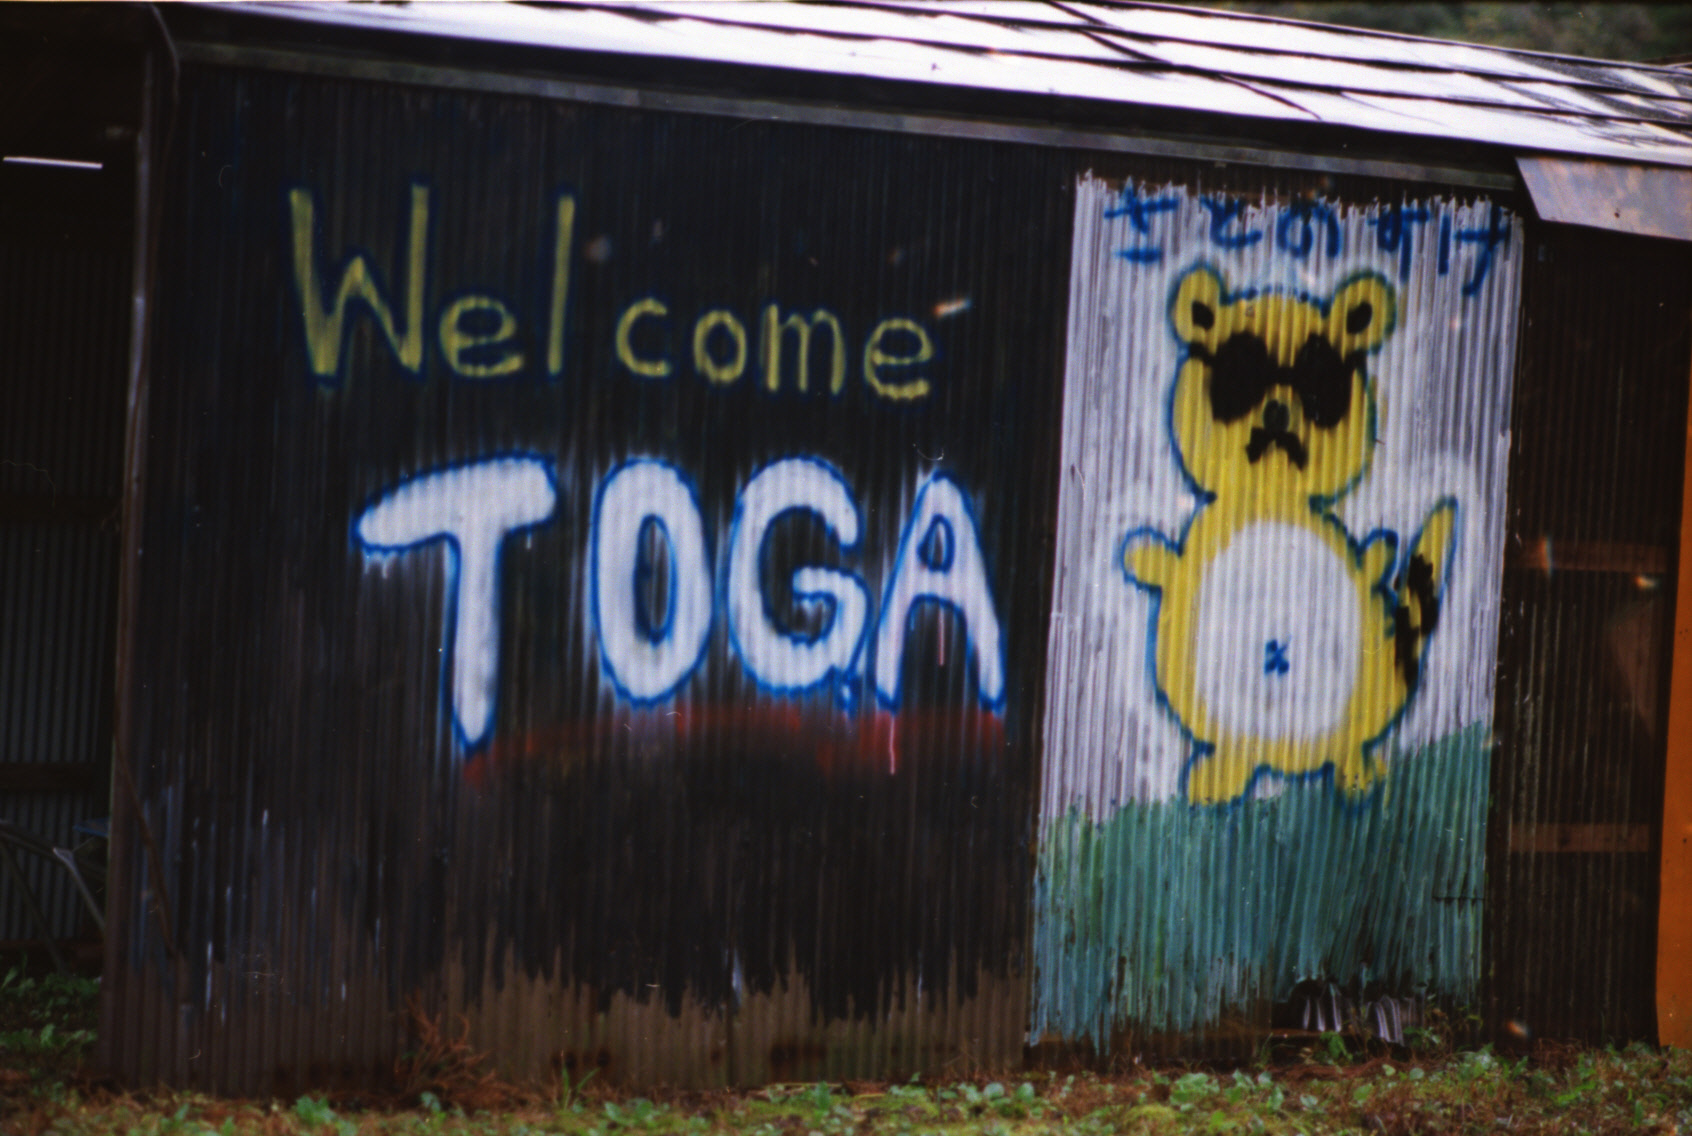 Welcome
TOGA
さとのすけ